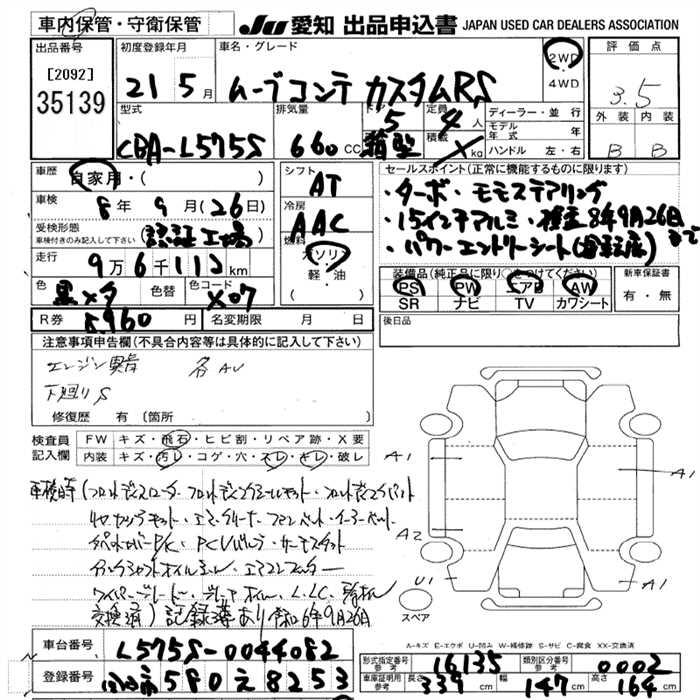 車内保管・守衛保管
JU 愛知 出品申込書 JAPAN USED CAR DEALERS ASSOCIATION
出品番号
[2092]
35139
初度登録年月
21 5月
車名・グレード
ムーブコンテ カスタムRS
2WD
・
4WD
評価点
3.5
外装 内装
B B
型式
CBA-L575S
排気量
660cc
ドア
5
箱型
定員
4人
積載
X kg
ディーラー・並行
モデル年式 年
ハンドル 左・右
車歴
自家用・( )
車検
8年 9月(26日)
受検形態
車検付きのみ記入して下さい
(認証工場)
走行
9万6千112km
色
黒メタ
色替
色コード
X07
シフト
AT
冷房
AAC
燃料
ガソリン
・
軽・油
( )
セールスポイント(正常に機能するものに限ります)
・ターボ・モモステアリング
・15インチアルミ・検査8年9月26日まで
・パワーエントリーシート(運転席)
装備品(純正品に限り○をつけてください)
PS PW エアB AW
SR ナビ TV カワシート
新車保証書
有・無
R券
8,960円
名変期限 月 日
後日品
注意事項申告欄(不具合内容等は具体的に記入して下さい)
エンジン異音 各AU
下廻りS
修復歴 有(箇所
検査員
記入欄
FW キズ・飛石・ヒビ割・リペア跡・X要
内装 キズ・汚レ・コゲ・穴・スレ・キレ・破レ
車検時(フロントディスクローター・フロントディスクシールキット・フロントディスクパット
リヤカップキット・エアクリーナー・ファンベルト・クーラーベルト
タペットカバーP/K・PCVバルブ・サーモスタット
クランクシャフトオイルシール・エアコンフィルター
ワイパーブレード・ブレーキオイル・L.L.C・
交換済) 記録簿あり 令和6年9月26日
A1
A1
A2
U1
A1
スペア
A-キズ E-エクボ U-凹み W-補修跡 S-サビ C-腐食 XX-交換済
車台番号
L575S-0044082
登録番号
580え8253
形式指定番号
参考
16135
類別区分番号
参考
0002
車庫証明用
参考
長さ 339cm
幅 147cm
高さ 164cm